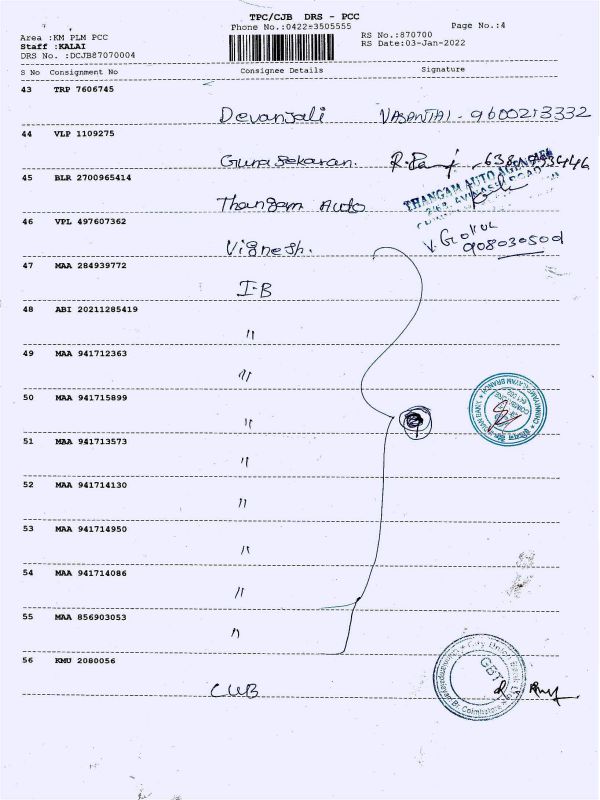 TPC/CJB DRS - PCC
Phone No.:0422-3505555
Page No.:4
Area :KM PLM PCC
Staff :KALAI
DRS No. :DCJB87070004
RS No.:870700
RS Date:03-Jan-2022
S No Consignment No Consignee Details Signature
43 TRP 7606745
Devanjali VASANTHI - 9600213332
44 VLP 1109275
Gunasekaran.
45 BLR 2700965414
Thangam Auto THANGAM AUTO AGENCIES
46 VPL 497607362
Vignesh. V. Gokul
908030500
47 MAA 284939772
I-B
48 ABI 20211285419
"
49 MAA 941712363
"
50 MAA 941715899
"
51 MAA 941713573
"
52 MAA 941714130
"
53 MAA 941714950
"
54 MAA 941714086
"
55 MAA 856903053
"
56 KMU 2080056
CUB